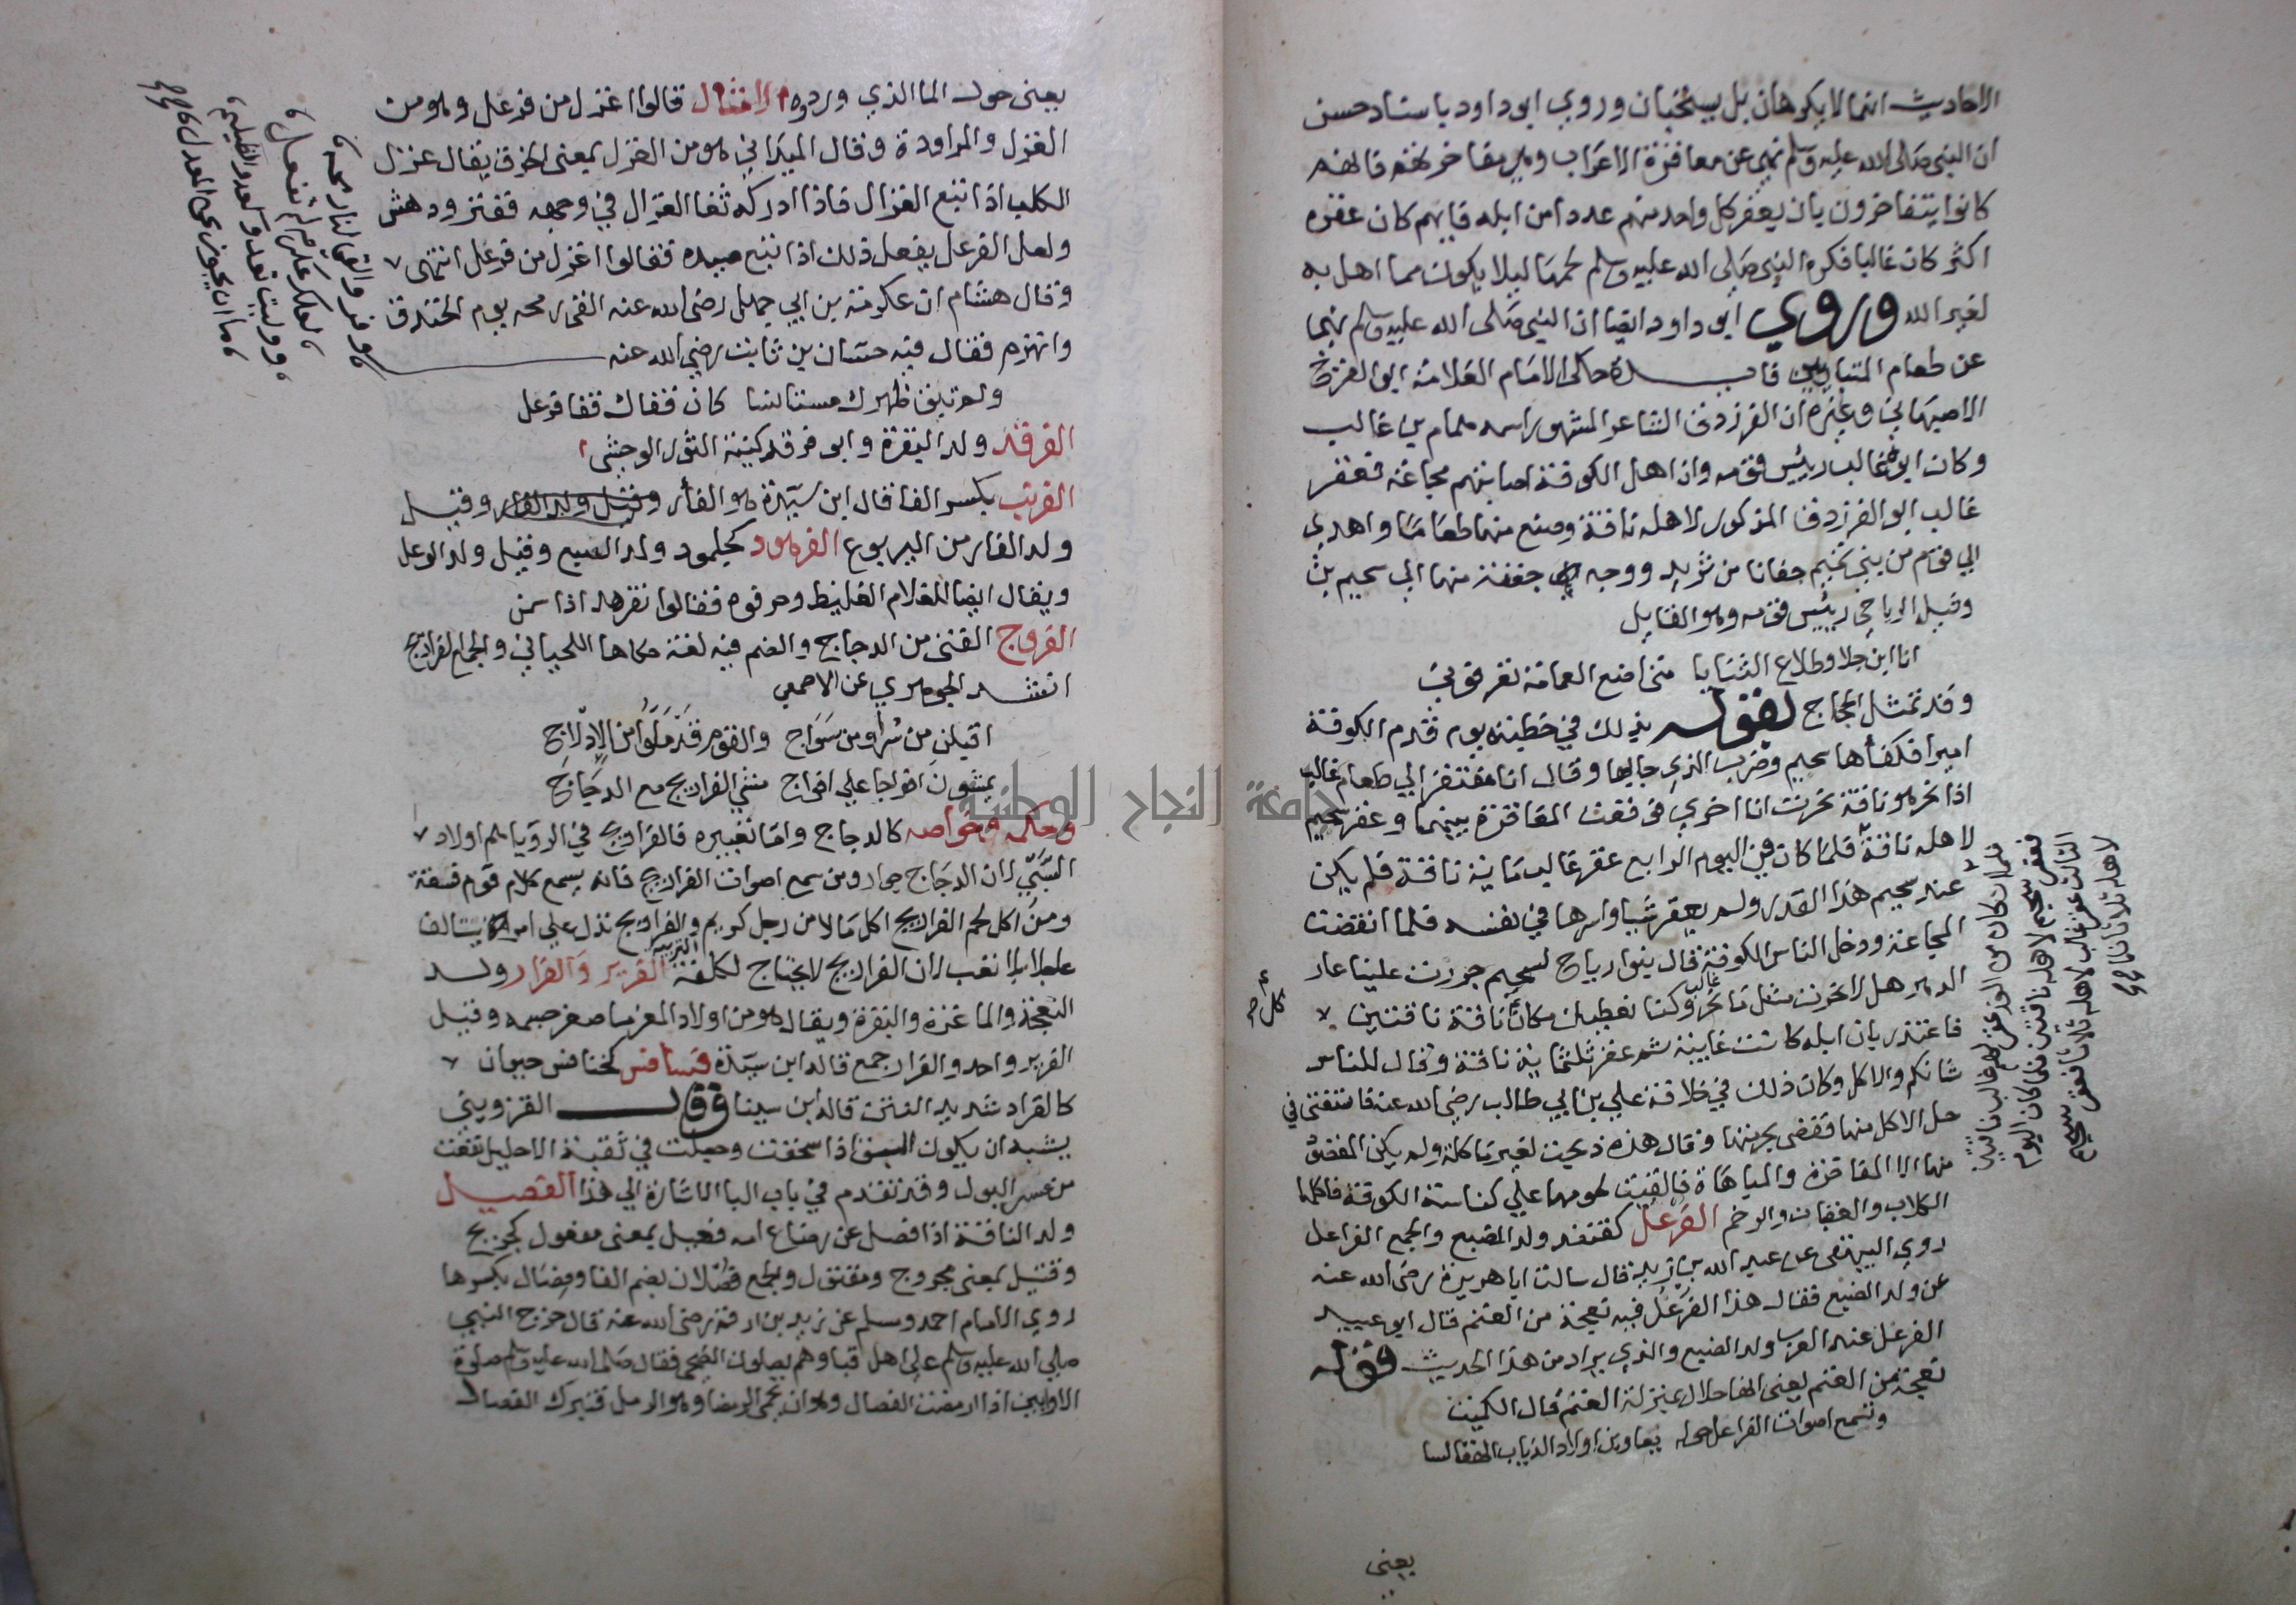 الاحاديث انها لا يكرهان بل يستحبان وروي ابو داود باسناد حسن
ان النبي صلى الله عليه وسلم نهى عن معاقرة الاعراب وهي مفاخرتهم فانهم
كانوا يتفاخرون بان يعقر كل واحد منهم عددا من ابله فايهم كان عقره
اكثر كان غالبا فكره النبي صلى الله عليه وسلم لحمها ليلا يكون مما اهل به
لغير الله وروي ابو داود ايضا ان النبي صلى الله عليه وسلم نهى
عن طعام المتباريين فايدة حكى الامام العلامة ابو الفرج
الاصبهاني وغيره ان الفرزدق الشاعر المشهور اسمه همام بن غالب
وكان ابوه غالب رييس قومه وان اهل الكوفة اصابتهم مجاعة فعقر
غالب ابو الفرزدق المذكور لاهله ناقة وصنع منها طعاما واهدى
الي قوم من بني تميم جفانا من ثريد ووجه جفنة منها الي سحيم بن
وثيل الرياحي رييس قومه وهو القايل
انا ابن جلا وطلاع الثنايا متى اضع العمامة تعرفوني
وقد تمثل الحجاج بقوله بذلك في خطبته يوم قدم الكوفة
اميرا فكفأها سحيم وضرب الذي جا بها وقال انا مفتقر الي طعام غالب
اذا نحر هو ناقة نحرت انا اخري فوقعت المعاقرة بينهما وعقر سحيم
لاهله ناقة فلما كان في اليوم الرابع عقر غالب ماية ناقة فلم يكن
عند سحيم هذا القدر ولم يعقر شيا واسرها في نفسه فلما انقضت
المجاعة ودخل الناس الكوفة قال بنو رياح لسحيم جررت علينا عار
الدهر هلا نحرت مثل ما نحر غالب وكنا نعطيك مكان كل ناقة ناقتين
فاعتذر بان ابله كانت غايبة ثم عقر ثلثماية ناقة وقال للناس
شانكم والاكل وكان ذلك في خلافة علي بن ابي طالب رضي الله عنه فاستفتي في
حل الاكل منها فقضى بحرمتها وقال هذه ذبحت لغير ماكلة ولم يكن المقصود
منها الا المفاخرة والمباهاة فالقيت لحومها علي كناسة الكوفة فاكلها
الكلاب والعقبان والرخم الفرعل كقنفذ ولد الضبع والجمع الفراعل
روي البيهقي عن عبد الله بن زيد قال سالت ابا هريرة رضي الله عنه
عن ولد الضبع فقال هذا الفرعل فيه نعجة من الغنم قال ابو عبيد
الفرعل عند العرب ولد الضبع والذي يراد من هذا الحديث قوله
نعجة من الغنم يعني انها حلال بمنزلة الغنم قال الكميت
وتسمع اصوات الفراعل حوله يعاوين اولاد الذياب الهقالسا
يعني
فلما كان من الغد عقر لهم غالب ناقتين
فعقر سحيم لاهله ناقتين فلما كان اليوم
الثالث عقر غالب لاهله ثلاثا فعقر سحيم
لاهله ثلاثا فلما صح
كل صح
يعني حول الما الذي وردوه الامثال قالوا اغزل من فرعل وهو من
الغزل والمراودة وقال الميداني هو من الغزل بمعنى الخرق يقال غزل
الكلب اذا تبع الغزال فاذا ادركه ثغا الغزال في وجهه ففتر ودهش
ولعل الفرعل يفعل ذلك اذا تبع صيده فقالوا اغزل من فرعل انتهى
وقال هشام ان عكرمة بن ابي جهل رضي الله عنه القى رمحه يوم الخندق
وانهزم فقال فيه حسان بن ثابت رضي الله عنه
ولم تلق ظهرك مستانسا كان قفاك قفا فرعل
الفرقد ولد البقرة وابو فرقد كنية الثور الوحشي
الفرنب بكسر الفا قال ابن سيدة هو الفأر وقيل ولد الفار وقيل
ولد الفار من اليربوع الفرهود كجلمود ولد السبع وقيل ولد الوعل
ويقال ايضا للغلام الغليظ وحرفوه فقالوا تفرهد اذا سمن
الفروج الفتى من الدجاج والضم فيه لغة حكاها اللحياني والجمع الفراريج
انشد الجوهري عن الاصمعي
اقبلن من نير ومن سواج والقوم قد ملوا من الادلاج
يمشون افواجا علي افواج مشي الفراريج مع الدجاج
وحكمه وخواصه كالدجاج واما تعبيره فالفراريج في الرويا هم اولاد
السبي لان الدجاج جوار ومن سمع اصوات الفراريج فانه يسمع كلام قوم فسقة
ومن اكل لحم الفراريج اكل مالا من رجل كريم والفراريج تدل علي امر يتالف
عاجلا بلا تعب لان الفراريج لا تحتاج لكلفة التربية الفرير والفرار ولد
النعجة والماعزة والبقرة ويقال هو من اولاد المعز ما صغر جسمه وقيل
الفرير واحد والفرار جمع قاله ابن سيدة فسافس كخنافس حيوان
كالقراد شديد النتن قاله ابن سينا وقال القزويني
يشبه ان يكون البق اذا سحقت وجعلت في ثقبة الاحليل نفعت
من عسر البول وقد تقدم في باب البا الاشارة الي هذا الفصيل
ولد الناقة اذا فصل عن رضاع امه فعيل بمعنى مفعول كجريح
وقتيل بمعنى مجروح ومقتول والجمع فصلان بضم الفا وفصال بكسرها
روي الامام احمد ومسلم عن زيد بن ارقم رضي الله عنه قال خرج النبي
صلي الله عليه وسلم علي اهل قبا وهم يصلون الضحى فقال صلى الله عليه وسلم صلوة
الاوابين اذا رمضت الفصال وهو ان تحمى الرمضا وهو الرمل فتبرك الفصال
وفر والقى لنا رمحه
لعلك عكرم لم تفعل
ووليت تعدو كعدو الظليم
ما ان يحور عن المعدل صح
جامعة النجاح الوطنية